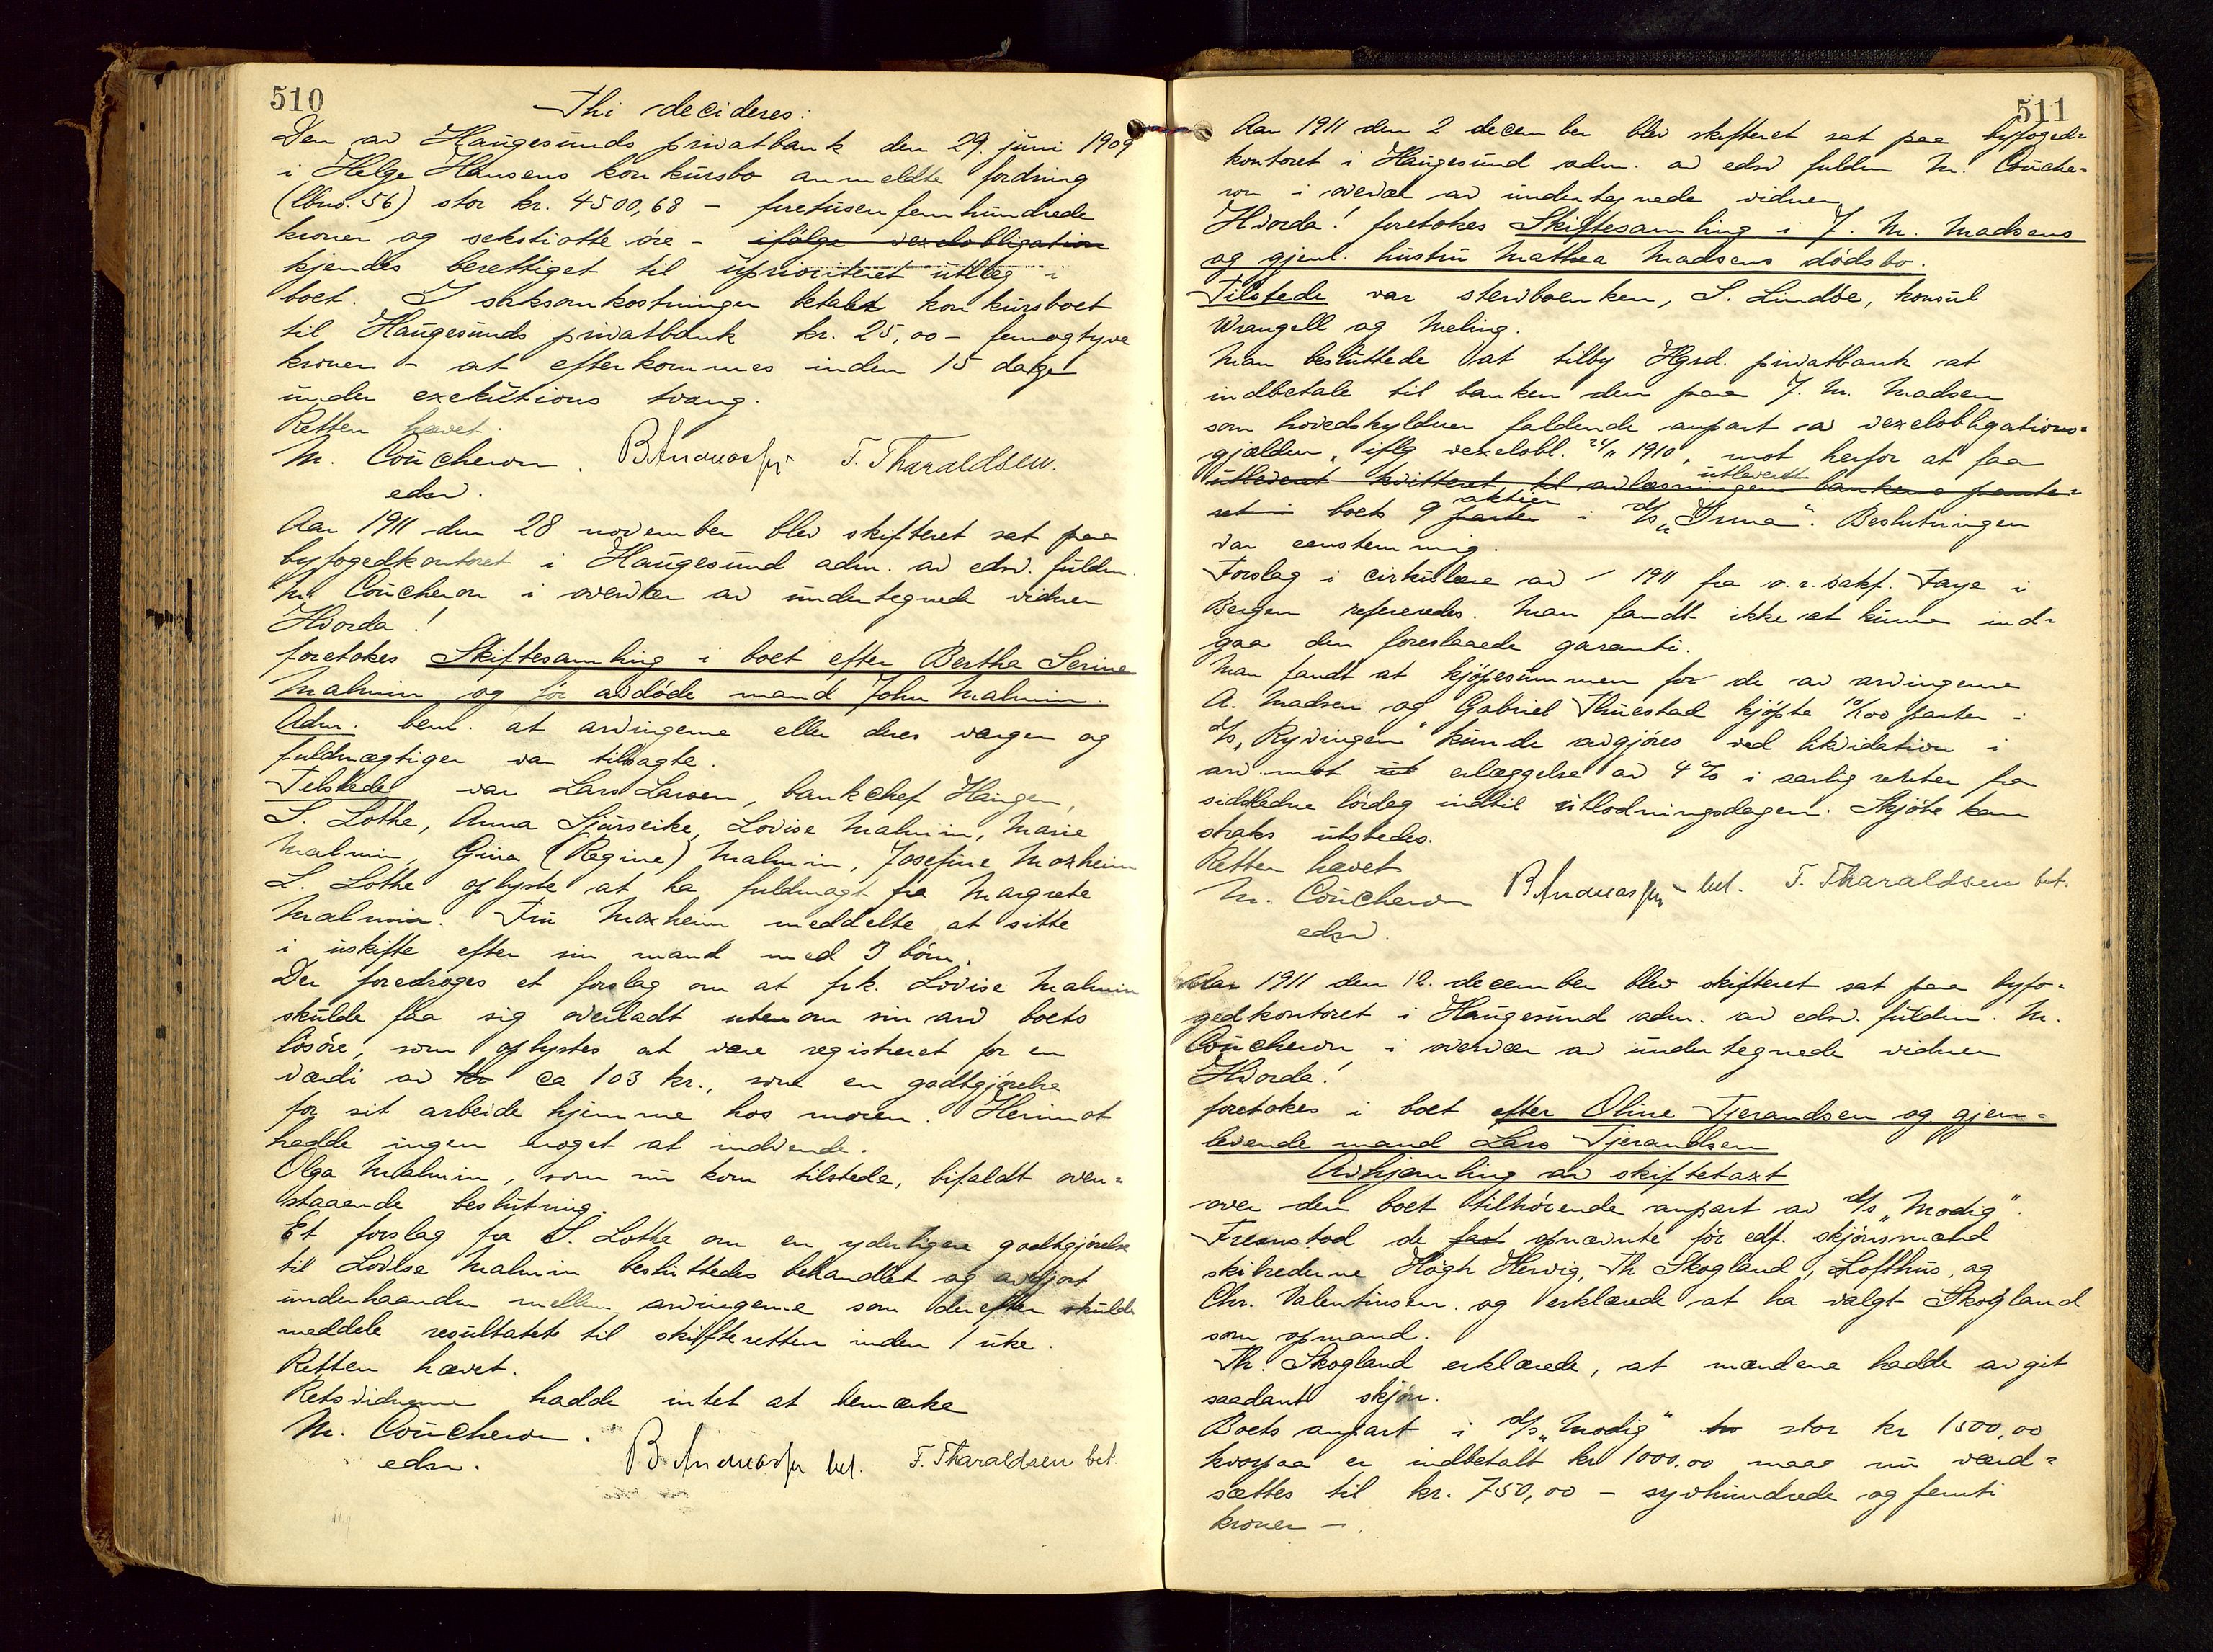 510
Thi decideres:
Den av Haugesunds privatbank den 29. juni 1909
i Helge Hansens konkursbo anmeldte fordring
(lbno. 56) stor kr. 4500,68 – firetusen femhundrede
kroner og sekstiotte øre – ifølge vexelobligation
kjendes berettiget til uprioriteret utlæg i
boet. I saksomkostninger betaler konkursboet
til Haugesunds privatbank kr. 25,00 – femogtyve
kroner – at efterkommes inden 15 dage
under exekutions tvang.
Retten hævet.
M. Coucheron. B. Andreassen F. Tharaldsen.
edsv.
Aar 1911 den 28 november blev skifteret sat paa
byfogedkontoret i Haugesund adm. av edsv. fuldm.
M. Coucheron i overvær av undertegnede vidner
Hvorda!
foretokes Skiftesamling i boet efter Bertha Serine
Malmin og før avdøde mand John Malmin.
Adm. bem. at arvingerne eller deres værger og
fuldmægtiger var tilsagte.
Tilstede var Lars Larsen, bankchef Haugen,
S. Lothe, Anna Sjurseike, Lovise Malmin, Marie
Malmin, Gina (Regine) Malmin, Josefine Moxheim
L. Lothe oplyste at ha fuldmagt fra Margrete
Malmin. Fru Moxheim meddelte at sitte
i uskifte efter sin mand med 3 børn.
Der foredroges et forslag om at frk. Lovise Malmin
skulde faa sig overladt utenom sin arv boets
løsøre, som oplystes at være registreret for en
værdi av kr ca 103 kr., som en godtgjørelse
for sit arbeide hjemme hos moren. Herimot
hadde ingen noget at indvende.
Olga Malmin, som nu kom tilstede, bifaldt oven-
staaende beslutning.
Et forslag fra S. Lothe om en yderligere godtgjørelse
til Lovise Malmin besluttedes behandlet og avgjort
underhaanden mellem arvingerne som derefter skulde
meddele resultatet til skifteretten inden 1 uke.
Retten hævet.
Retsvidnerne hadde intet at bemærke
M. Coucheron.
edsv. B. Andreassen bet. F. Tharaldsen bet.
511
Aar 1911 den 2 december blev skifteret sat paa byfoged-
kontoret i Haugesund adm. av edsv fuldm M. Couche-
ron i overvær av undertegnede vidner
Hvorda! foretokes Skiftesamling i J. M. Madsens
og gjenl. hustru Mathea Madsens dødsbo.
Tilstede var stervboenken, S. Lindøe, konsul
Wrangell og Meling.
Man besluttede at tilby Hgsd. privatbank at
indbetale til banken den paa J. M. Madsen
som hovedskyldner faldende anpart av vexelobligations-
gjælden, iflg vexelobl. 1910, mot herfor at faa
utleveret kvitteret til avlæsningen utleveret bankens pante-
ret i boets 9 parter aktier i d/s „Irma“. Beslutningen
var eenstemmig.
Forslag i cirkulære av / 1911 fra o.r.sakf. Faye i
Bergen refereredes. Man fandt ikke at kunne ind-
gaa den foreslaaede garanti.
Man fandt at kjøpesummen for de av arvingerne
A. Madsen og Gabriel Thuestad kjøpte 10/100 parter i
d/s „Ryvingen“ kunde avgjøres ved likvidation i
arv mot ut erlæggelse av 4 % i aarlig renter fra
sidstledne lørdag indtil utlodningsdagen. Skjøte kan
straks utstedes.
Retten hævet
M. Coucheron B. Andreassen bet. F. Tharaldsen bet.
edsv.
Aar 1911 den 12. december blev skifteret sat paa byfo-
gedkontoret i Haugesund adm. av edsv. fuldm. M.
Coucheron i overvær av undertegnede vidner
Hvorda!
foretokes i boet efter Oline Tjerandsen og gjen-
levende mand Lars Tjerandsen
Avhjemling av skiftetaxt
over den boet tilhørende anpart av d/s „Modig“.
Fremstod de fast opnævnte før edf. skjønsmænd
skibrederne Høgh Hervig, Th Skogland, Lofthus, og
Chr. Valentinsen. og erklærede at ha valgt Skogland
som opmand.
Th. Skogland erklærede, at mændene hadde avgit
saadant skjøn.
Boets anpart i d/s „Modig“ stor kr 1500,00
hvorpaa er indbetalt kr 1000.00 maa nu værd-
sættes til kr. 750,00 – syvhundrede og femti
kroner –.